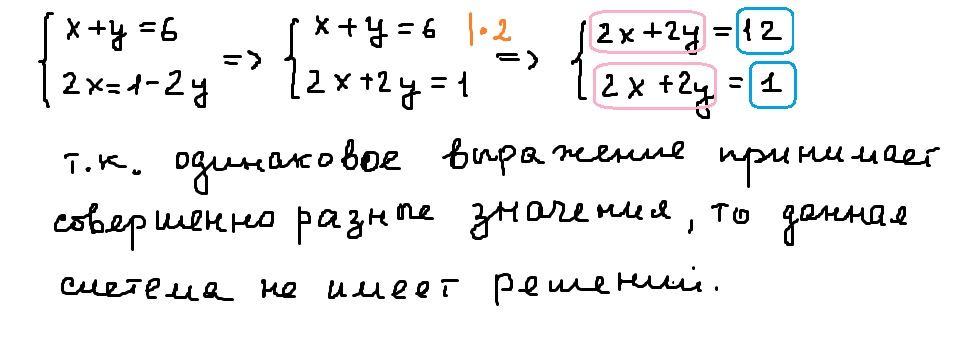 x+y=6 => x+y=6 |·2 => 2x+2y=12
2x=1-2y 2x+2y=1 2x+2y=1
т.к. одинаковое выражение принимает
совершенно разные значения, то данная
система не имеет решений.